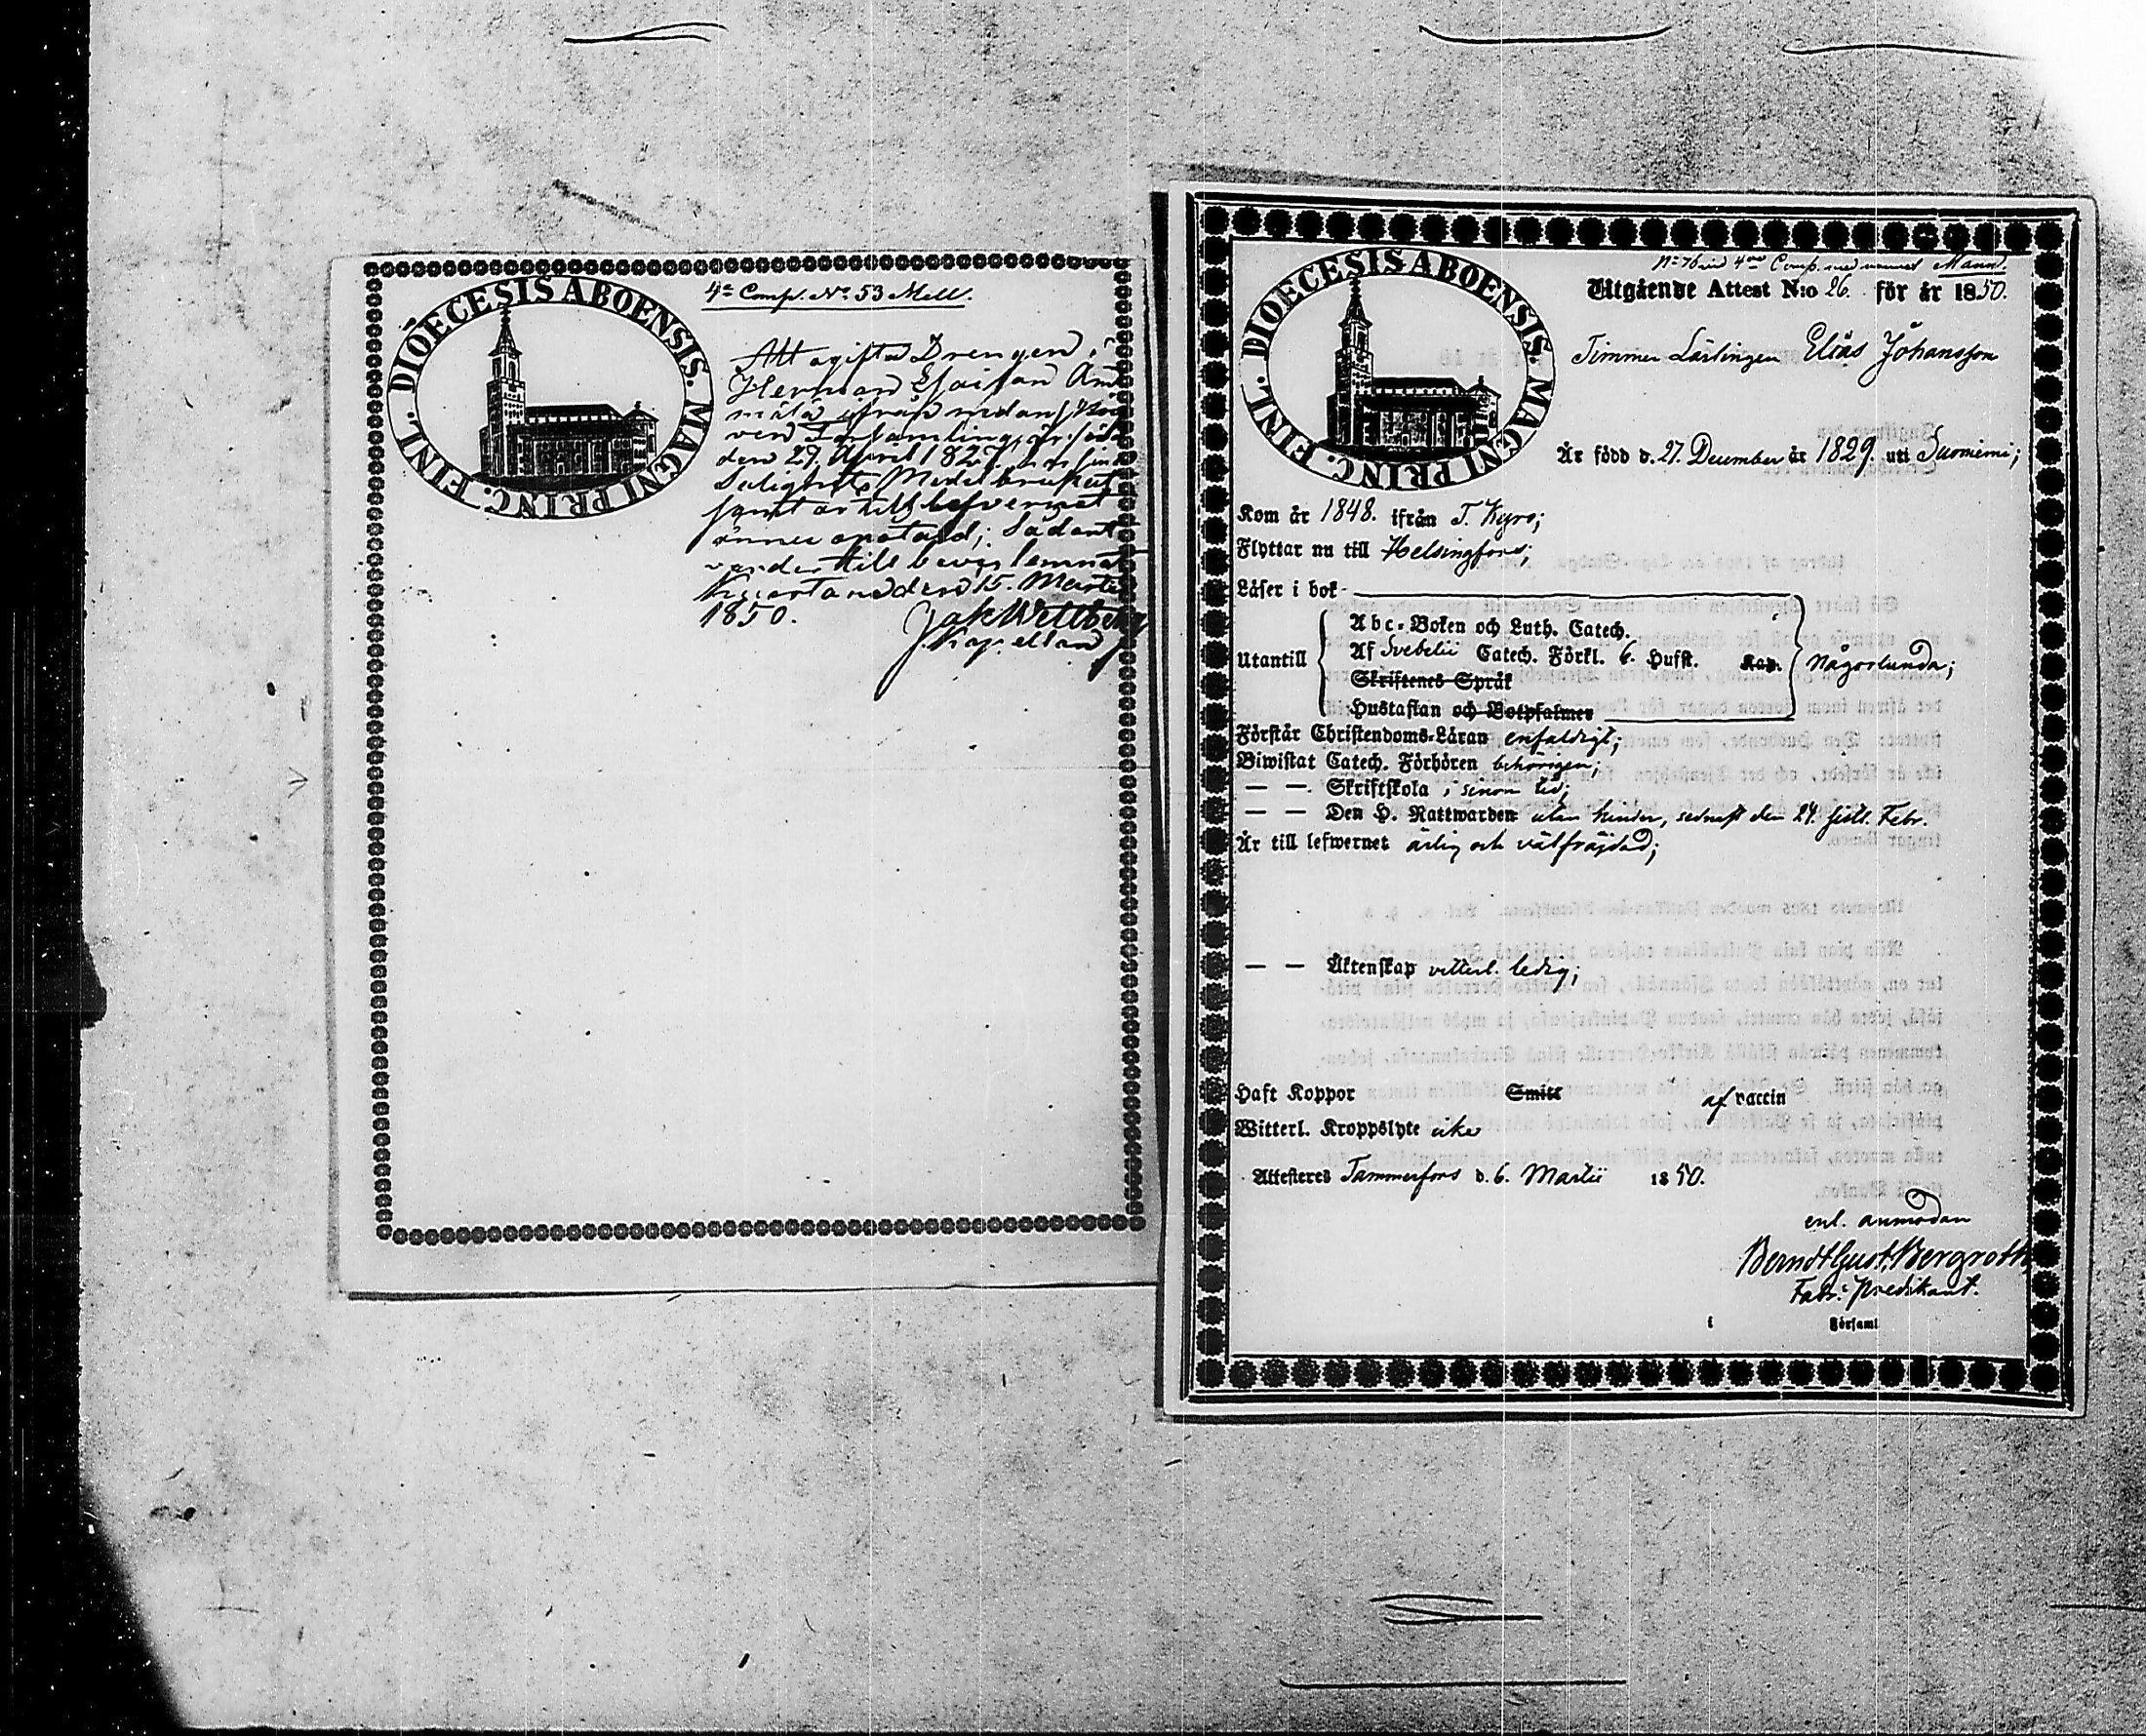 DIOECESIS ABOENSIS. MAGNI PRINC. FINL.
4e Comp. No 53 Mell.
Att ogifta Drengen
Herman Esaisson
ifrån nedan
Församling, är född
den 29 April 1827, har sina
Salighets Medel brukat
samt är till lefvernet
Sådant
varder till bevis lemnat
den 15. Martii
1850.
Jak Wettberg
Kapellan
DIOECESIS ABOENSIS. MAGNI PRINC. FINL.
No 76 vid 4de Comp. med namnet Mann.
Utgående Attest N:o 26. för år 1850.
Timmer Lärlingen Elias Johansson
Är född d. 27. December år 1829. uti Suoniemi;
Kom år 1848. ifrån T. Kyro;
Flyttar nu till Helsingfors;
Läser i bok
Utantill
Abc-Boken och Luth. Catech.
Af Svebelii Catech. Förkl. 6. Hufst. Kap.
Skriftenes Språk
Hustaflan och Botpsalmer
någorlunda;
Förstår Christendoms-Läran enfaldigt;
Biwistat Catech. Förhören behörigen;
— — Skriftskola i sinom tid;
— — Den H. Nattwarden utan hinder, sednast den 24. sistl. Febr.
Är till lefwernet ärlig och välfräjdad;
— — Äktenskap vitterl. ledig;
Haft Koppor Smitt af vaccin
Witterl. Kroppslyte icke
Attesteres Tammerfors d. 6. Martii 1850.
enl. anmodan
Berndt Gust. Bergroth
Fabr: Predikant.
i Församl